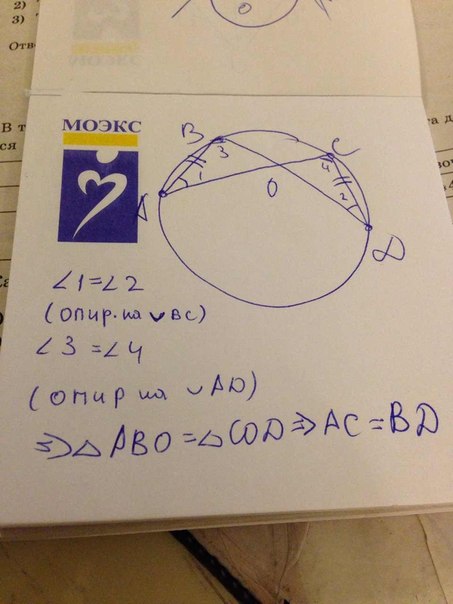 2)
3)
Отве
O
В т
ся
МОЭКС
B
C
3
4
1
2
O
A
D
∠1=∠2
(опир. на ◡BC)
∠3=∠4
(опир на ◡AD)
⇒△ABO=△COD⇒AC=BD